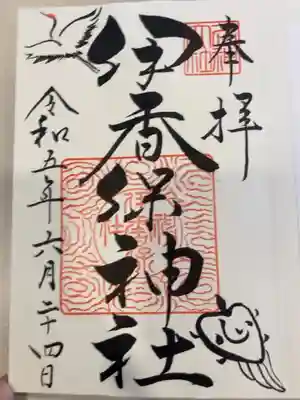 奉拝
伊香保神社
令和五年六月二十四日